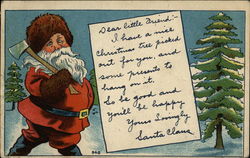 Dear little Friend:-
I have a nice
Christmas tree picked
out for you, and
some presents to
hang on it.
So be good and
you'll be happy
Yours Lovingly
Santa Claus